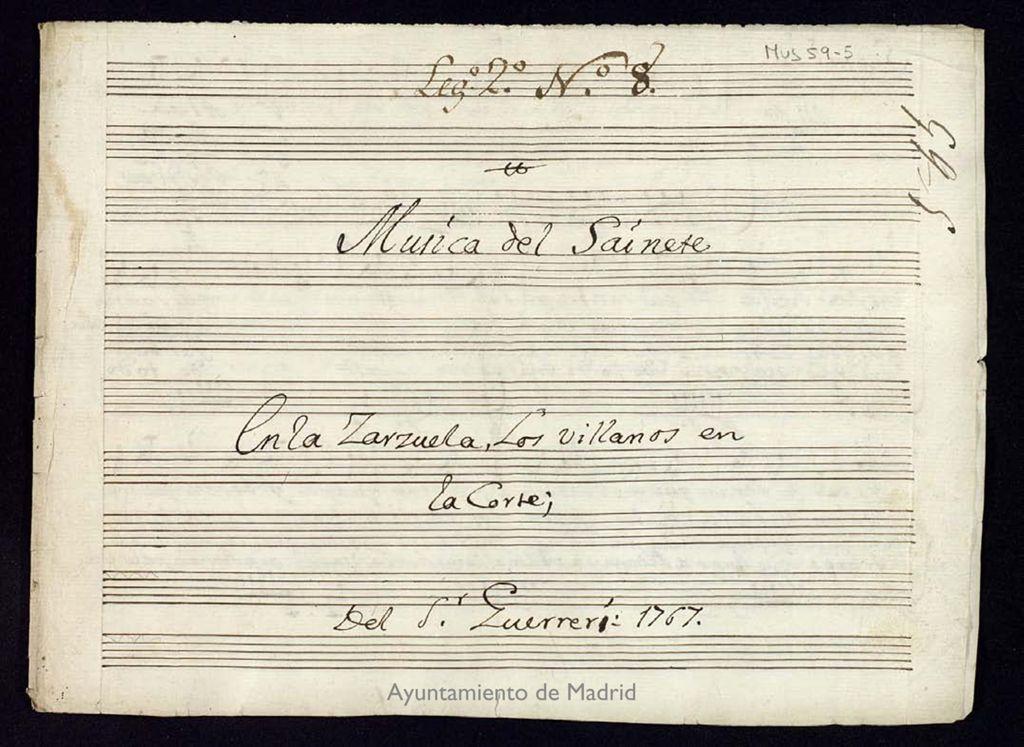 Mus 59-5
Leg.º 2.º N.º 8.
59-5
Musica del Sainete
En la Zarzuela, Los villanos en
la Corte;
Del S.r Guerrero: 1767.
Ayuntamiento de Madrid